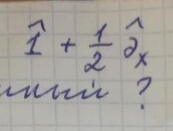 1̂ + 1/2 ∂̂ₓ
?